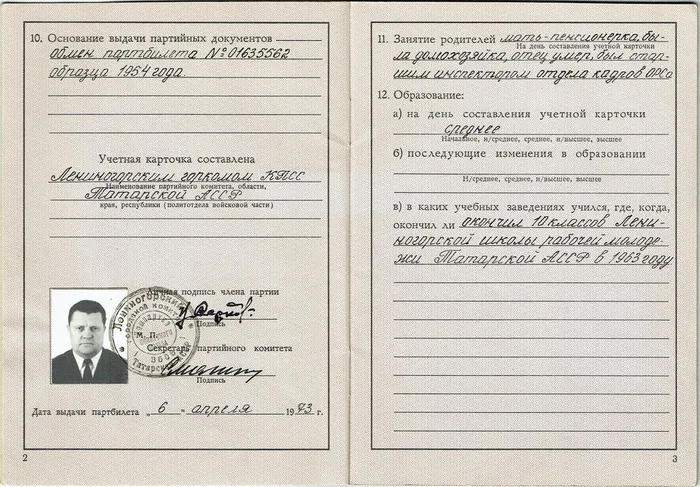 10. Основание выдачи партийных документов
обмен партбилета № 01635562
образца 1954 года.
Учетная карточка составлена
Лениногорским горкомом КПСС
Наименование партийного комитета, области,
Татарской АССР
края, республики (политотдела войсковой части)
Личная подпись члена партии
Подпись
М. П.
Секретарь партийного комитета
Подпись
Дата выдачи партбилета „ 6 “ апреля 1973 г.
2
11. Занятие родителей мать-пенсионерка, бы-
На день составления учетной карточки
ла домохозяйка, отец умер, был стар-
шим инспектором отдела кадров ОРСа
12. Образование:
а) на день составления учетной карточки
среднее
Начальное, н/среднее, среднее, н/высшее, высшее
б) последующие изменения в образовании
Н/среднее, среднее, н/высшее, высшее
в) в каких учебных заведениях учился, где, когда,
окончил ли окончил 10 классов Лени-
ногорской школы рабочей молоде-
жи Татарской АССР в 1963 году
3